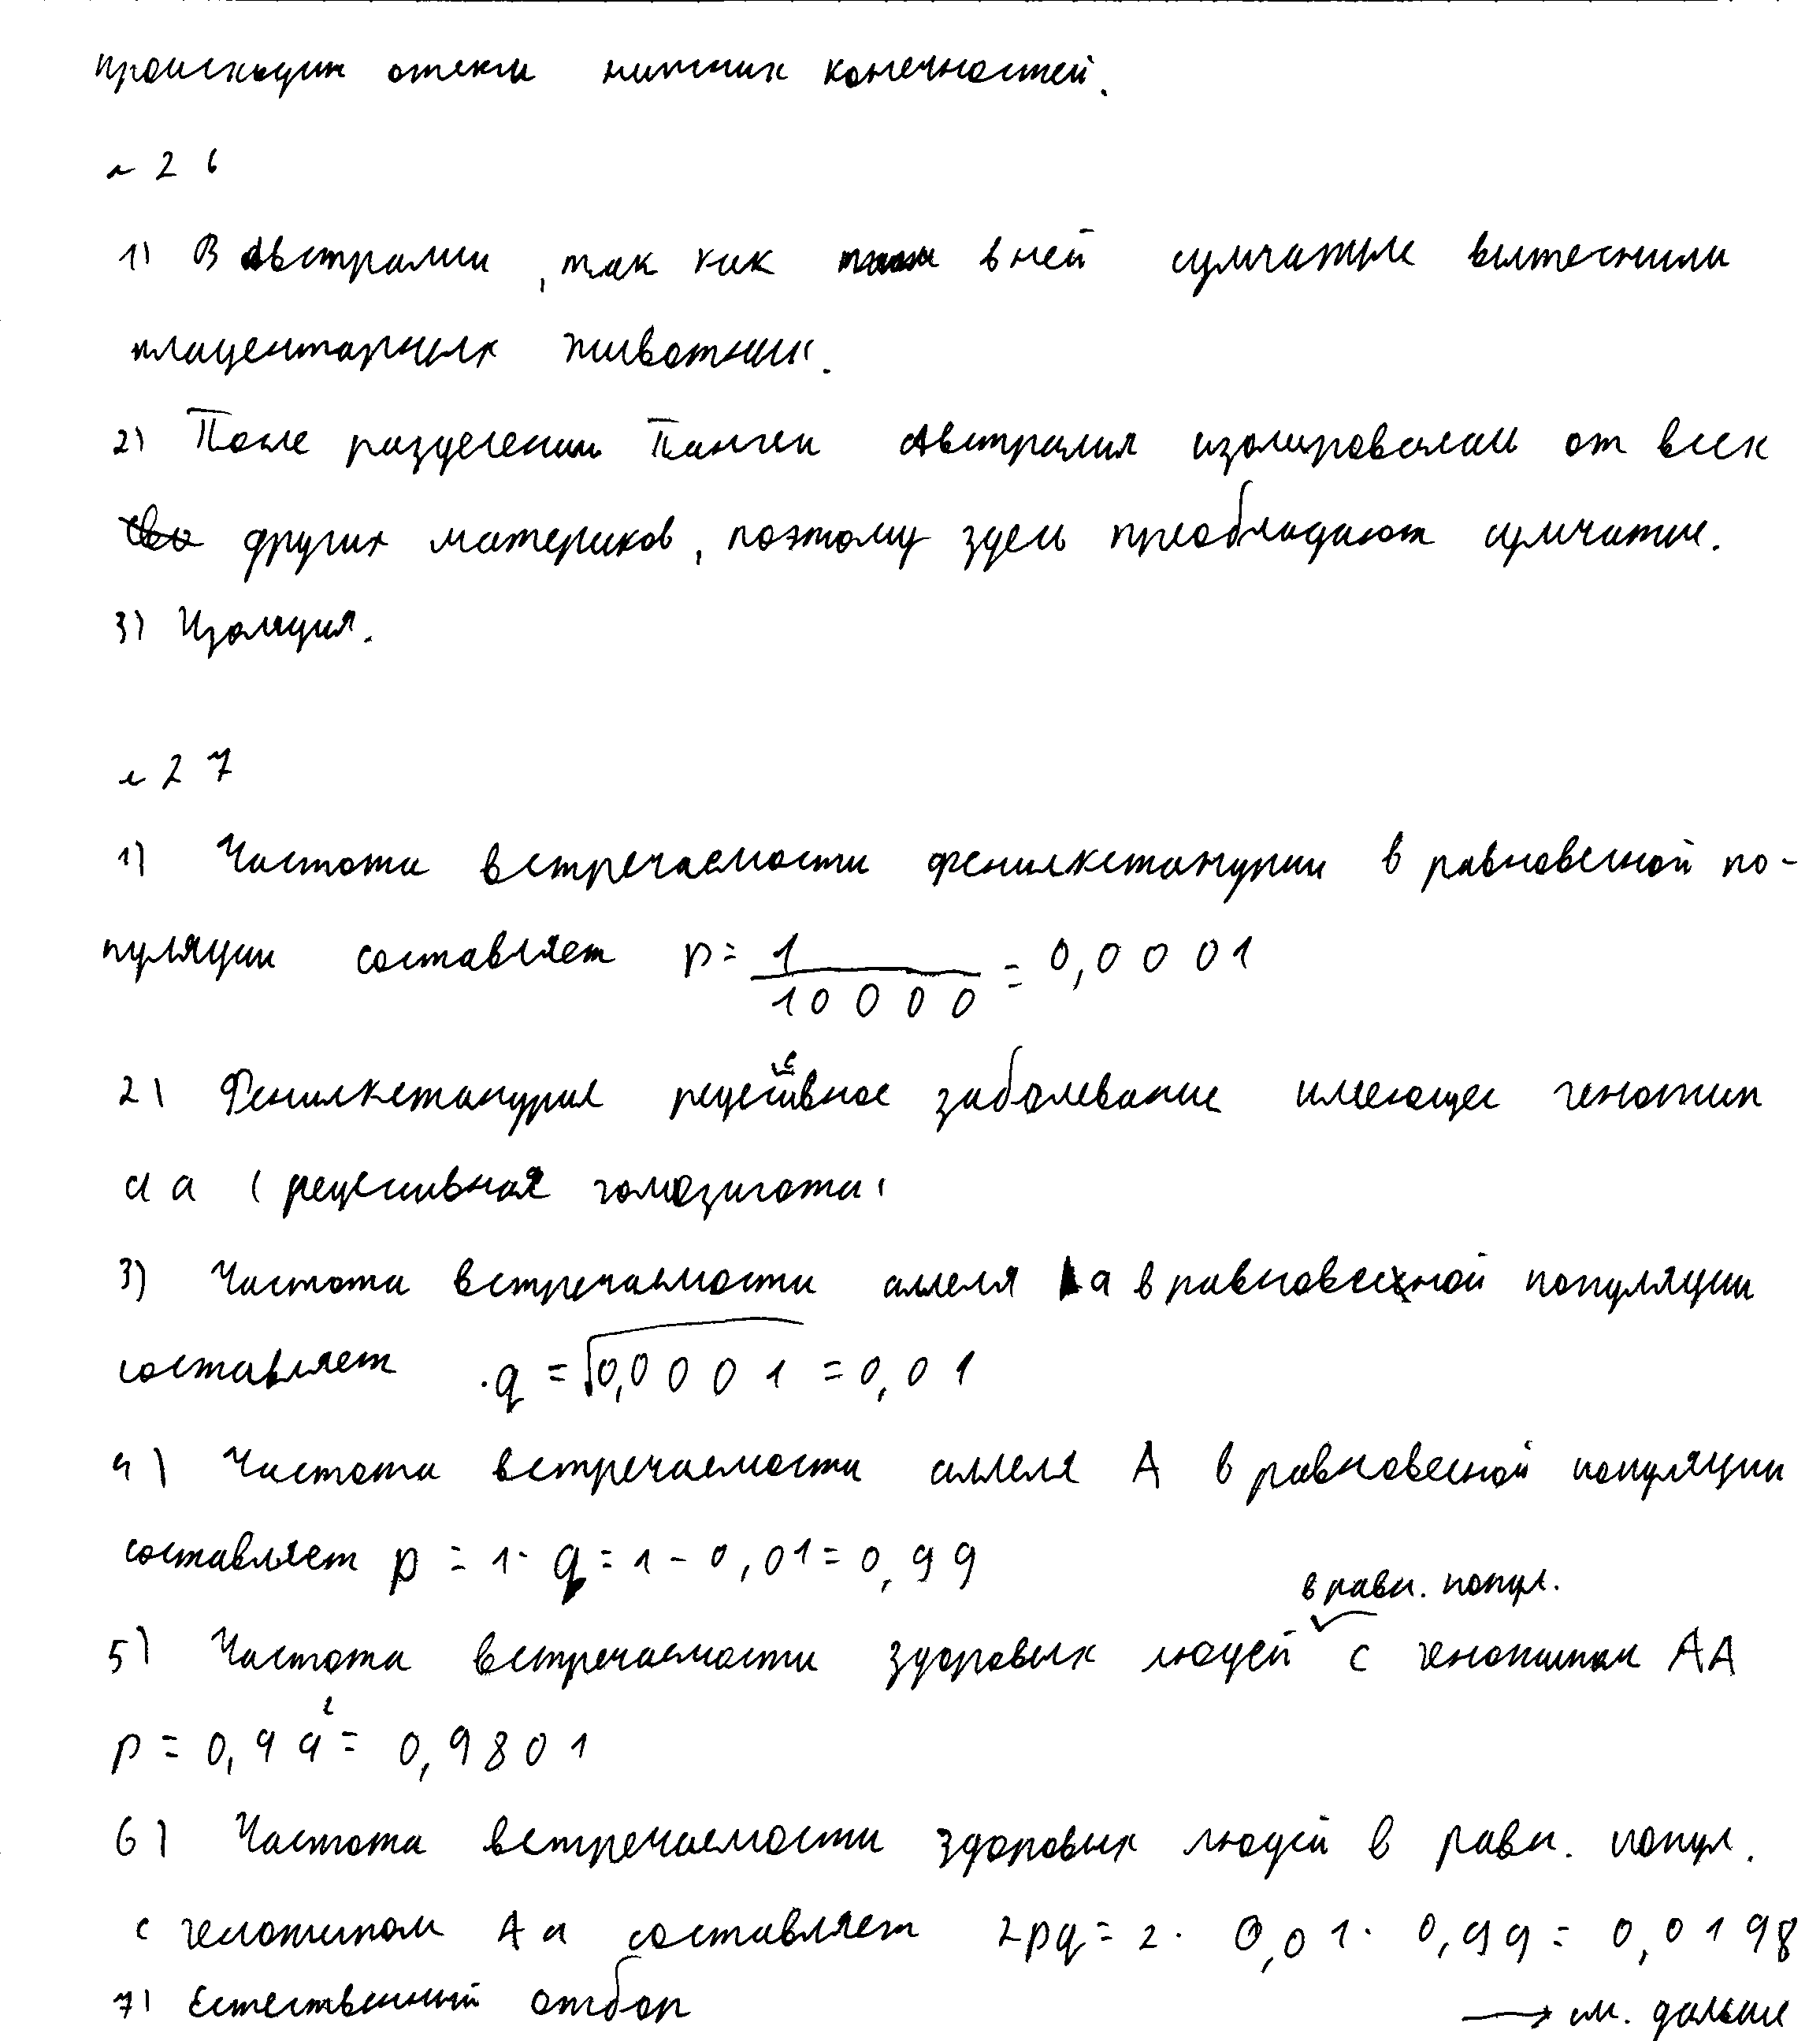 происходит отеки нижних конечностей.
№ 26
1) В Австралии, так как в ней сумчатые вытеснили
плацентарных животных.
2) После разделения Пангеи Австралия изолировалась от всех
других материков, поэтому здесь преобладают сумчатые.
3) Изоляция.
№ 27
1) Частота встречаемости фенилкетонурии в равновесной по-
пуляции составляет p = 1/10000 = 0,0001
2) Фенилкетонурия рецессивное заболевание имеющее генотип
aa (рецессивная гомозигота)
3) Частота встречаемости аллеля a в равновесной популяции
составляет q = √0,0001 = 0,01
4) Частота встречаемости аллеля A в равновесной популяции
составляет p = 1 - q = 1 - 0,01 = 0,99
в равн. попул.
5) Частота встречаемости здоровых людей с генотипом AA
p = 0,99² = 0,9801
6) Частота встречаемости здоровых людей в равн. попул.
с генотипом Aa составляет 2pq = 2 · 0,01 · 0,99 = 0,0198
7) Естественный отбор → см. дальше